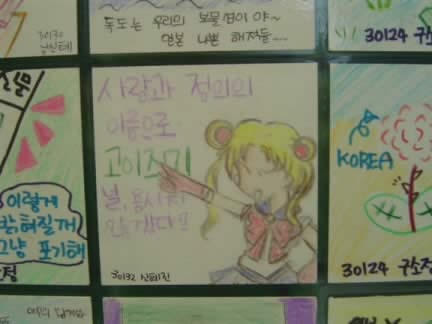 독도는 우리의 보물섬이야~
일본 나쁜 해적들....
30130
30124 구소정
사랑과 정의의
이름으로
고이즈미
널 용서치
않겠다!!
30132 신혜진
이렇게
밝혀질거
그냥 포기해
KOREA
30124 구소정